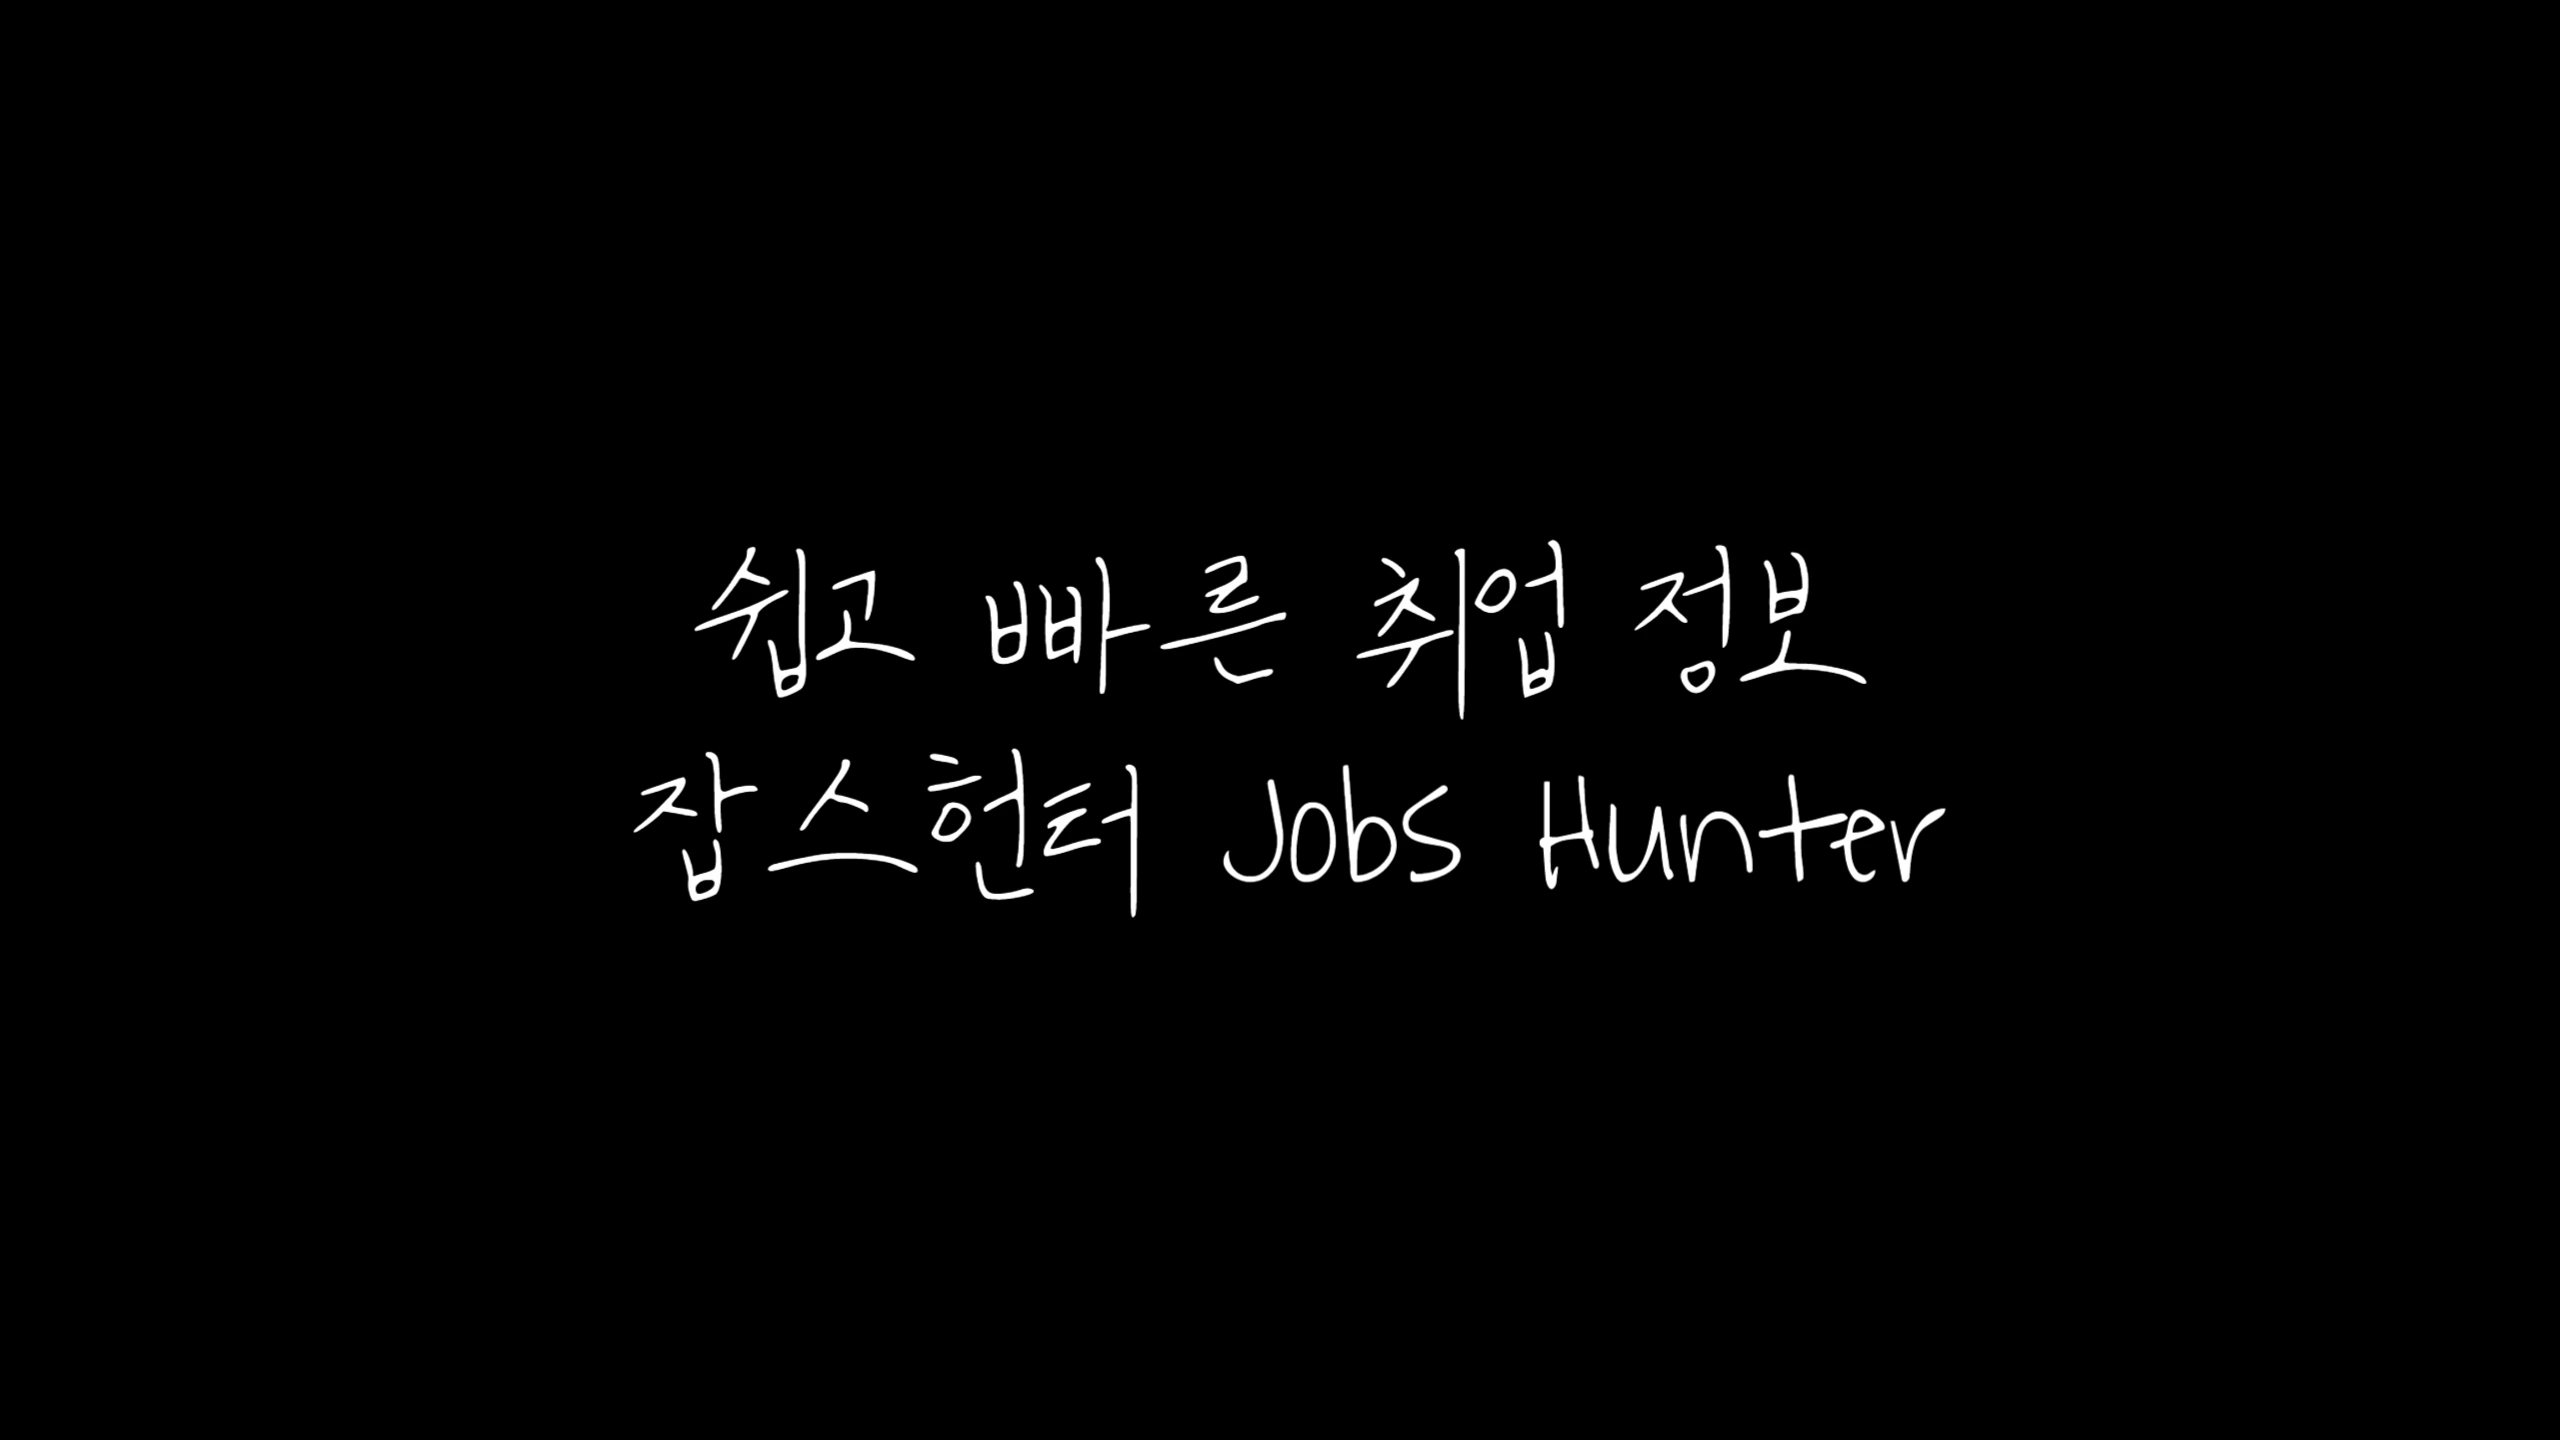 쉽고 빠른 취업 정보
잡스헌터 Jobs Hunter